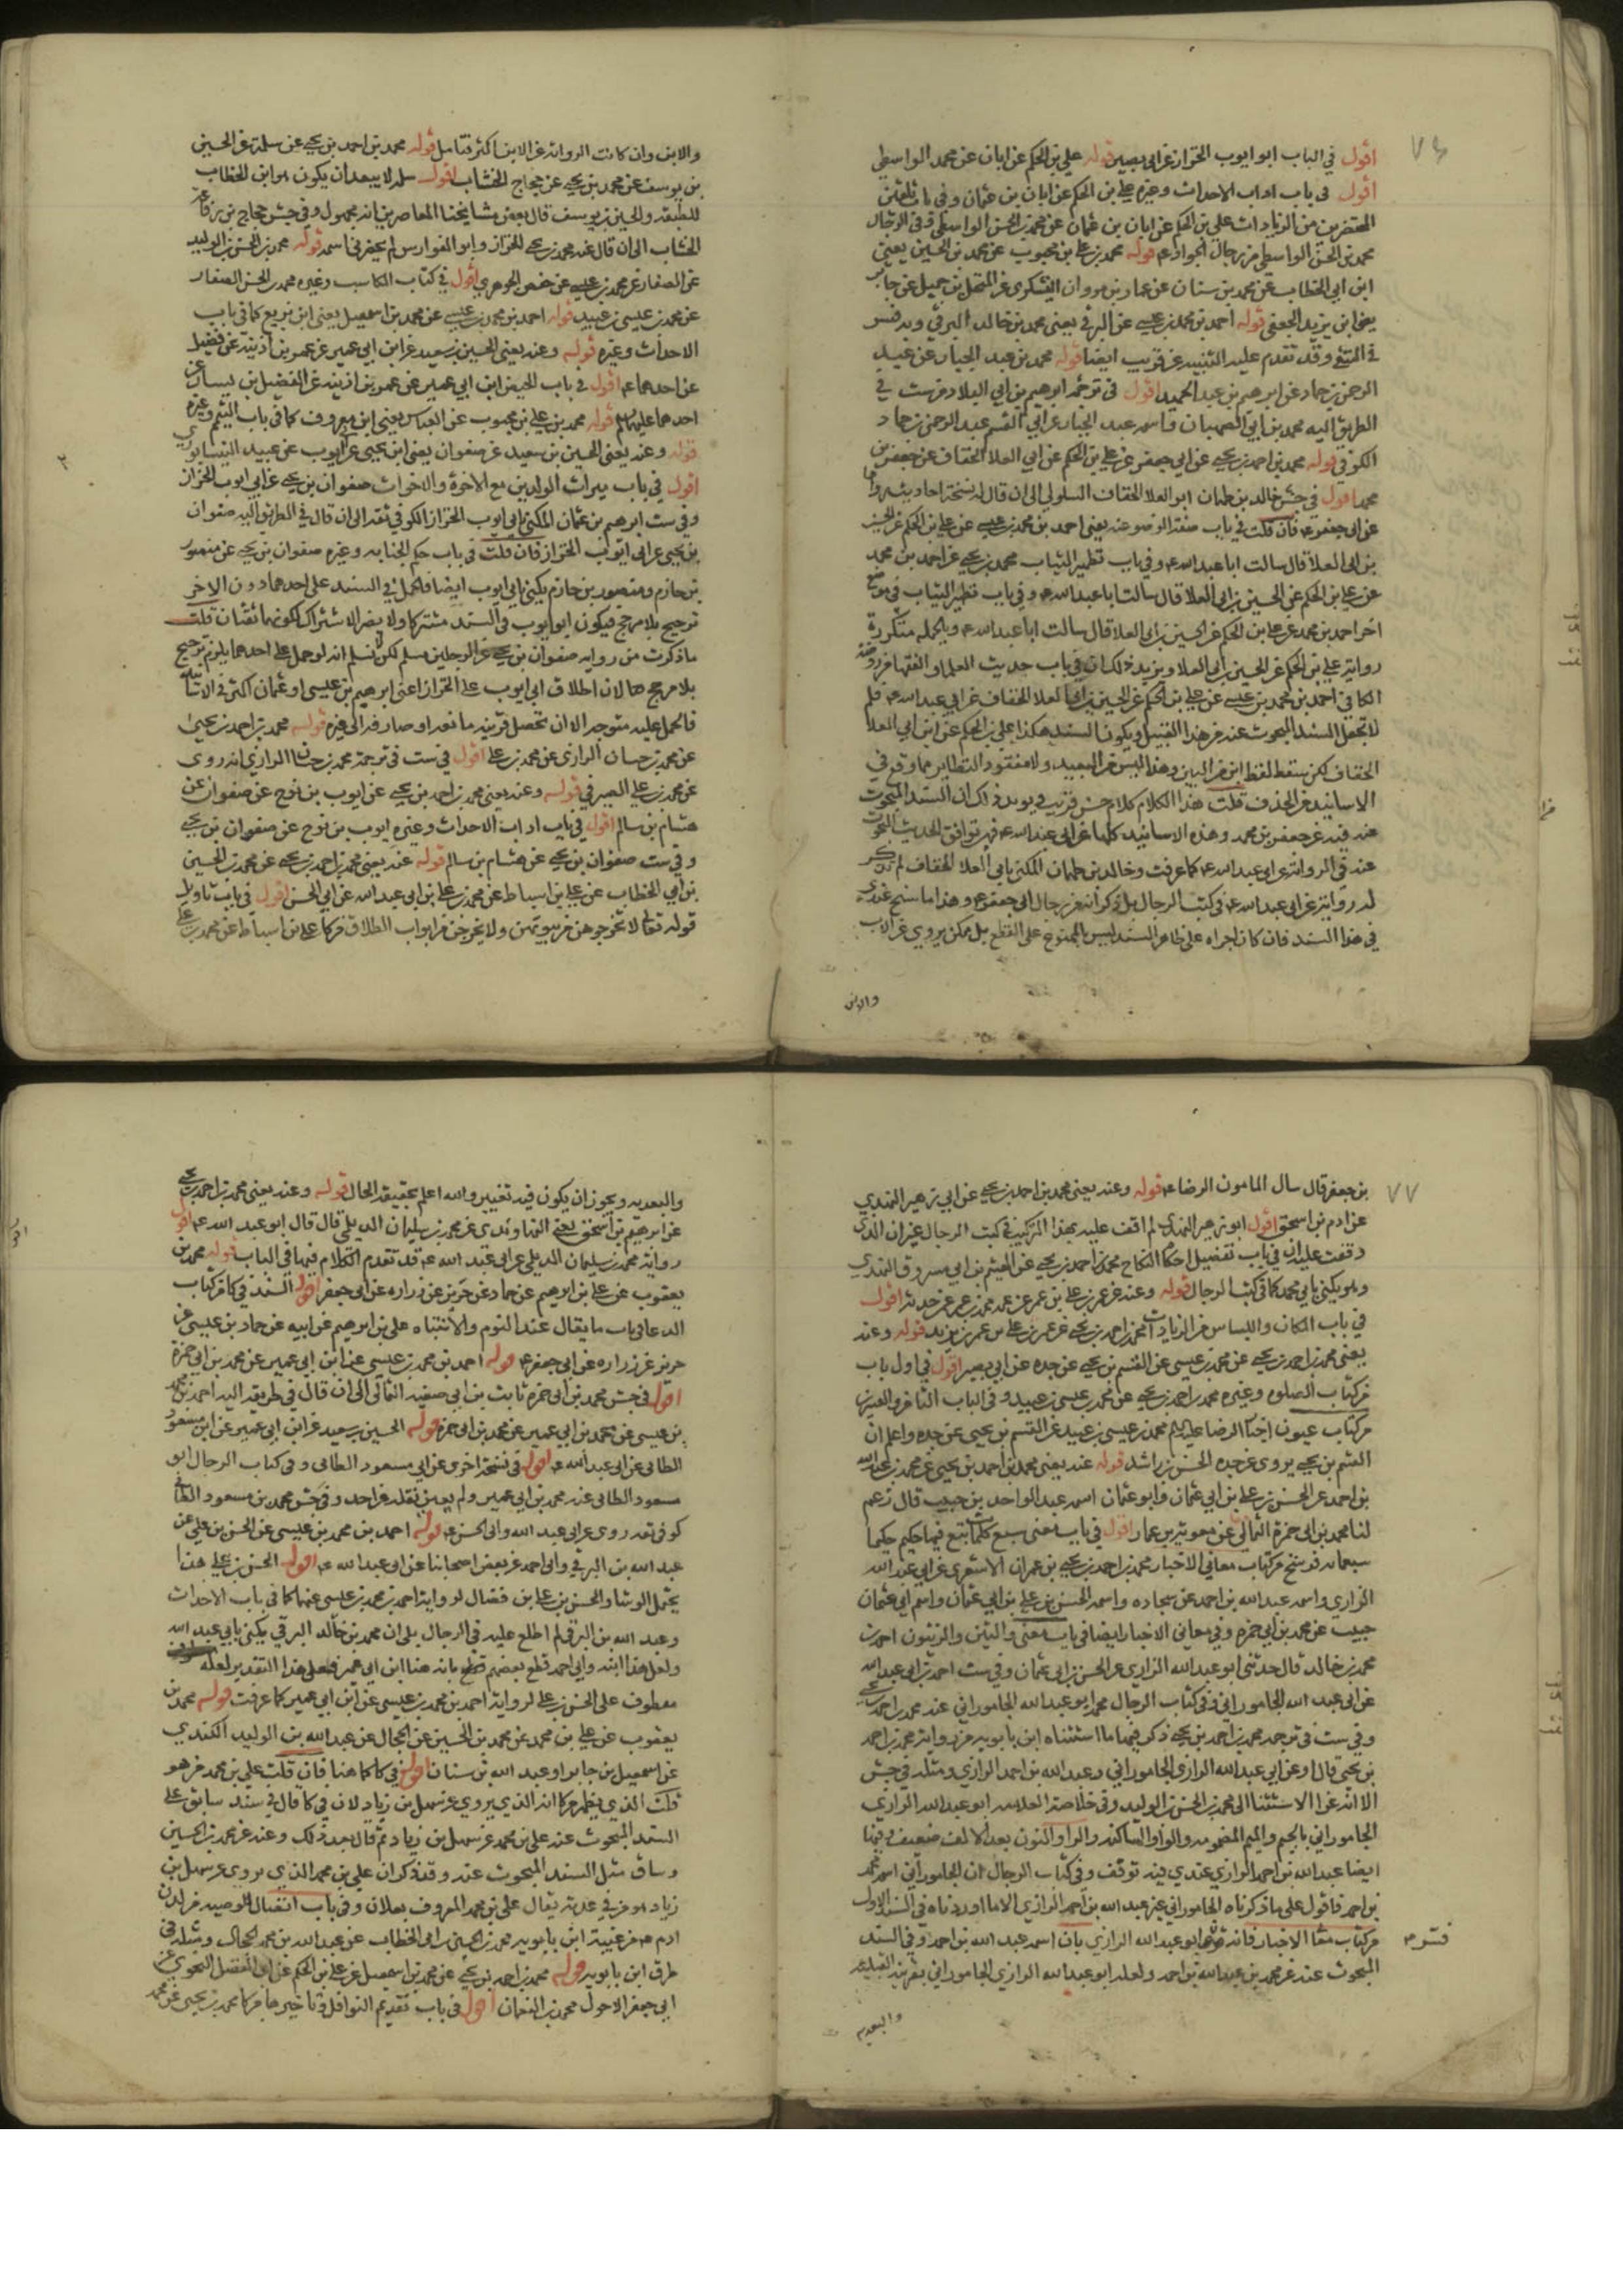 ٧٦
اقول في الباب ابو ايوب الخزاز عن ابي بصير قوله علي بن الحكم عن ابان عن محمد الواسطي
اقول في باب اداب الاحداث وغيره علي بن الحكم عن ابان بن عثمان وفي باب تلقين
المحتضرين من الزيادات علي بن الحكم عن ابان بن عثمان عن محمد بن الحسن الواسطي وفي الرجال
محمد بن الحسن الواسطي من رجال الجواد ع قوله محمد بن علي بن محبوب عن محمد بن الحسين يعني
ابن ابي الخطاب عن محمد بن سنان عن عمار بن مروان اليشكري عن المنخل بن جميل عن جابر
يعني ابن يزيد الجعفي قوله احمد بن محمد بن عيسى عن البرقي يعني محمد بن خالد البرقي وبه فسر
في المنتقى وقد تقدم عليه التنبيه عن قريب ايضا قوله محمد بن عبد الجبار عن عبد
الرحمن بن حماد عن ابرهيم بن عبد الحميد اقول في ترجمة ابرهيم بن ابي البلاد من ست في
الطريق اليه محمد بن ابي الصهبان واسمه عبد الجبار عن ابي القسم عبد الرحمن بن حماد
الكوفي قوله محمد بن احمد بن يحيى عن ابي جعفر عن علي بن الحكم عن ابي العلا الخفاف عن جعفر بن
محمد اقول في جش خالد بن طهمان ابو العلا الخفاف السلولي الى ان قال له نسخة احاديث رواها
عن ابي جعفر ع فان قلت في باب صفة الوضو عنه يعني احمد بن محمد بن عيسى عن علي بن الحكم عن الحسين
بن ابي العلا قال سالت ابا عبد الله ع وفي باب تطهير الثياب محمد بن يحيى عن احمد بن محمد
عن علي بن الحكم عن الحسين بن ابي العلا قال سالت ابا عبد الله ع وفي باب تطهير الثياب في موضع
اخر احمد بن محمد عن علي بن الحكم عن الحسين بن ابي العلا قال سالت ابا عبد الله ع وبالجملة متكررة
رواية علي بن الحكم عن الحسين بن ابي العلا ويزيد ذلك ان في باب حديث العلما والفقها من روضة
الكافي احمد بن محمد بن عيسى عن علي بن الحكم عن الحسين بن ابي العلا الخفاف عن ابي عبد الله ع فلم
لا تجعل السند المبحوث عنه من هذا القبيل ويكون السند هكذا علي بن الحكم عن ابن ابي العلا
الخفاف لكن سقط لفظ ابن من البين وهذا ليس من البعيد ولا مفقود النظاير مما وقع في
الاسانيد من الحذف قلت هذا الكلام كلام حسن قريب ويويد ذلك ان السند المبحوث
عنه فيه عن جعفر بن محمد وهذه الاسانيد كلها عن ابي عبد الله ع فهو توافق الحديث المبحوث
عنه في الرواية عن ابي عبد الله ع كما عرفت وخالد بن طهمان المكنى بابي العلا الخفاف لم تذكر
له رواية عن ابي عبد الله ع في كتب الرجال بل ذكر انه من رجال ابي جعفر ع وهذا ما سنح عندي
في هذا السند فان كان اجراه على ظاهر السند ليس بالممنوع على القطع بل ممكن يروي عن الاب
والابن
والابن وان كانت الرواية عن الابن اكثر فتامل قوله محمد بن احمد بن يحيى عن سلمة عن الحسين
بن يوسف عن محمد بن يحيى عن حجاج الخشاب اقول سلمة لا يبعد ان يكون هو ابن الخطاب
للطبقة والحسين بن يوسف قال بعض مشايخنا المعاصرين انه مجهول وفي جش حجاج بن رفاعة
الخشاب الى ان قال عنه محمد بن يحيى الخزاز وابو الفوارس لم يحضرني اسمه قوله محمد بن الحسن بن الوليد
عن الصفار عن محمد بن عيسى عن حفص الجوهري اقول في كتاب المكاسب وغيره محمد بن الحسن الصفار
عن محمد بن عيسى بن عبيد قوله احمد بن محمد بن عيسى عن محمد بن اسمعيل يعني ابن بزيع كما في باب
الاحداث وغيره قوله وعنه يعني الحسين بن سعيد عن ابن ابي عمير عن عمر بن اذينة عن فضيل
عن احدهما ع اقول في باب الحيض ابن ابي عمير عن عمر بن اذينة عن الفضيل بن يسار عن
احدهما عليهما السلام قوله محمد بن علي بن محبوب عن العباس يعني ابن معروف كما في باب التيمم وغيره
قوله وعنه يعني الحسين بن سعيد عن صفوان يعني ابن يحيى عن ايوب عن عبيد النيسابوري
اقول في باب ميراث الوالدين مع الاخوة والاخوات صفوان بن يحيى عن ابي ايوب الخزاز
وفي ست ابرهيم بن عثمان المكنى بابي ايوب الخزاز الكوفي ثقة الى ان قال في الطريق اليه صفوان
بن يحيى عن ابي ايوب الخزاز فان قلت في باب حكم الجنابه وغيره صفوان بن يحيى عن منصور
بن حازم ومنصور بن حازم يكنى بابي ايوب ايضا فالحمل في السند على احدهما دون الاخر
ترجيح بلا مرجح فيكون ابو ايوب في السند مشتركا ولا يضر الاشتراك لكونهما ثقتان قلت
ما ذكرت من رواية صفوان بن يحيى عن الرجلين مسلم لكن لا نسلم انه لو حمل على احدهما يلزم ترجيح
بلا مرجح هنا لان اطلاق ابي ايوب على الخزاز اعني ابرهيم بن عيسى او عثمان اكثر في الاسناد
فالحمل عليه متوجه الا ان تحصل قرينه مانعه او صارفه الى غيره قوله محمد بن احمد بن يحيى
عن محمد بن حسان الرازي عن محمد بن علي اقول في ست في ترجمة محمد بن حسان الرازي انه روى
عن محمد بن علي الصيرفي قوله وعنه يعني محمد بن احمد بن يحيى عن ايوب بن نوح عن صفوان عن
هشام بن سالم اقول في باب اداب الاحداث وغيره ايوب بن نوح عن صفوان بن يحيى
وفي ست صفوان بن يحيى عن هشام بن سالم قوله عنه يعني محمد بن احمد بن يحيى عن محمد بن الحسين
بن ابي الخطاب عن علي بن اسباط عن محمد بن علي بن ابي عبد الله عن ابي الحسن اقول في باب تاويل
قوله تعالى لا تخرجوهن من بيوتهن ولا يخرجن من ابواب الطلاق من كا علي بن اسباط عن محمد بن علي
٧٧
بن جعفر قال سال المامون الرضا ع قوله وعنه يعني محمد بن احمد بن يحيى عن ابي زهير النهدي
عن ادم بن اسحق اقول ابو زهير النهدي لم اقف عليه بهذا التركيب في كتب الرجال غير ان الذي
وقفت عليه ان في باب تفضيل احكا النكاح محمد بن احمد بن يحيى عن الهيثم بن ابي مسروق النهدي
وهو يكنى بابي محمد كما في كتب الرجال قوله وعنه عن عمر بن علي بن عمر عن عمه محمد بن عمر عمن حدثه اقول
في باب المكان واللباس من الزيادات محمد بن احمد بن يحيى عن عمر بن علي بن عمر بن يزيد قوله وعنه
يعني محمد بن احمد بن يحيى عن محمد بن عيسى عن القسم بن يحيى عن جده عن ابي بصير اقول في اول باب
من كتاب الصلوة وغيره محمد بن احمد بن يحيى عن محمد بن عيسى بن عبيد وفي الباب الثامن والعشرين
من كتاب عيون اخبا الرضا عليه السلام محمد بن عيسى بن عبيد عن القسم بن يحيى عن جده واعلم ان
القسم بن يحيى يروي عن جده الحسن بن راشد قوله عنه يعني محمد بن احمد بن يحيى عن محمد بن عبد الله
بن احمد عن الحسن بن علي بن ابي عثمان وابو عثمان اسمه عبد الواحد بن حبيب قال زعم
لنا محمد بن ابي حمزة الثمالي عن معوية بن عمار اقول في باب معنى سبع كلمات تبع فيها حكيم حكيما
سبعمائة فرسخ من كتاب معاني الاخبار محمد بن احمد بن يحيى بن عمران الاشعري عن ابي عبد الله
الرازي واسمه عبد الله بن احمد عن سجاده واسمه الحسن بن علي بن ابي عثمان واسم ابي عثمان
حبيب عن محمد بن ابي حمزه وفي معاني الاخبار ايضا في باب معنى والتين والزيتون احمد بن
محمد بن خالد قال حدثني ابو عبد الله الرازي عن الحسن بن ابي عثمان وفي ست احمد بن ابي عبد الله
عن ابي عبد الله الجاموراني وفي كتاب الرجال محمد ابو عبد الله الجاموراني عنه محمد بن احمد بن يحيى
وفي ست في ترجمة محمد بن احمد بن يحيى ذكر فيها ما استثناه ابن بابويه من رواية محمد بن احمد
بن يحيى قال او عن ابي عبد الله الرازي الجاموراني وعبد الله بن احمد الرازي ومثله في جش
الا انه عزا الاستثنا الى محمد بن الحسن بن الوليد وفي خلاصة العلامه ابو عبد الله الرازي
الجاموراني بالجيم والميم المضمومه والواو الساكنه والرا والنون بعد الالف ضعيف وفيها
ايضا عبد الله بن احمد الرازي عندي فيه توقف وفي كتاب الرجال ان الجاموراني اسمه محمد
بن احمد فاقول على ما ذكرناه الجاموراني غير عبد الله بن احمد الرازي الا ما اوردناه في السند الاول
من كتاب معنا الاخبار فانه ابو عبد الله الرازي بان اسمه عبد الله بن احمد وفي السند
المبحوث عنه عن محمد بن عبد الله بن احمد ولعله ابو عبد الله الرازي الجاموراني بقرينه القبليه
والبعديه
والبعديه ويجوز ان يكون فيه تغيير والله اعلم بحقيقة الحال قوله وعنه يعني محمد بن احمد بن يحيى
عن ابرهيم بن اسحق يعني النهاوندي عن محمد بن سليمان الديلمي قال قال ابو عبد الله ع اقول
رواية محمد بن سليمان الديلمي عن ابي عبد الله ع قد تقدم الكلام فيها في الباب قوله محمد بن
يعقوب عن علي بن ابرهيم عن حماد عن حريز عن زراره عن ابي جعفر اقول السند في كا من كتاب
الدعا في باب ما يقال عند النوم والانتباه علي بن ابرهيم عن ابيه عن حماد بن عيسى عن
حريز عن زراره عن ابي جعفر ع قوله احمد بن محمد بن عيسى عن ابن ابي عمير عن محمد بن ابي حمزة
اقول في جش محمد بن ابي حمزه ثابت بن ابي صفيه الثمالي الى ان قال في طريقه اليه احمد بن محمد
بن عيسى عن محمد بن ابي عمير عن محمد بن ابي حمزه قوله الحسين بن سعيد عن ابن ابي عمير عن ابن مسعود
الطائي عن ابي عبد الله ع اقول في نسخة اخرى عن ابي مسعود الطائي وفي كتاب الرجال ابو
مسعود الطائي عنه محمد بن ابي عمير ولم يعين نقله عن احد وفي جش محمد بن مسعود الطائي
كوفي ثقه روى عن ابي عبد الله وابي الحسن ع قوله احمد بن محمد بن عيسى عن الحسن بن علي عن
عبد الله بن البرقي وابي احمد عن بعض اصحابنا عن ابي عبد الله ع اقول الحسن بن علي هذا
يحتمل الوشا والحسن بن علي بن فضال لرواية احمد بن محمد بن عيسى عنهما كما في باب الاحداث
وعبد الله بن البرقي لم اطلع عليه في الرجال بلى ان محمد بن خالد البرقي يكنى بابي عبد الله
ولعل هذا ابنه وابي احمد قطع بعضهم بانه هنا ابن ابي عمير فعلى هذا التقدير لعله
معطوف على الحسن بن علي لرواية احمد بن محمد بن عيسى عن ابن ابي عمير كما عرفت قوله محمد بن
يعقوب عن علي بن محمد عن محمد بن الحسين عن الحجال عن عبد الله بن الوليد الكندي
عن اسمعيل بن جابر او عبد الله بن سنان اقول في كا كما هنا فان قلت علي بن محمد من هو
قلت الذي يظهر من كا انه الذي يروي عن سهل بن زياد لان في كا قال في سند سابق على
السند المبحوث عنه علي بن محمد عن سهل بن زياد ثم قال بعد ذلك وعنه عن محمد بن الحسين
وساق مثل السند المبحوث عنه وقد ذكر ان علي بن محمد الذي يروي عن سهل بن
زياد هو من في عدته يقال علي بن محمد المعروف بعلان وفي باب اتصال الوصيه من لدن
ادم ع من غيبة ابن بابويه محمد بن الحسين بن ابي الخطاب عن عبد الله بن محمد الحجال ومثله في
طرق ابن بابويه قوله محمد بن احمد بن يحيى عن محمد بن اسمعيل عن علي بن الحكم عن ابي الفضل النحوي عن
ابي جعفر الاحول محمد بن النعمان اقول في باب تقديم النوافل وتاخيرها من كا محمد بن يحيى عن محمد